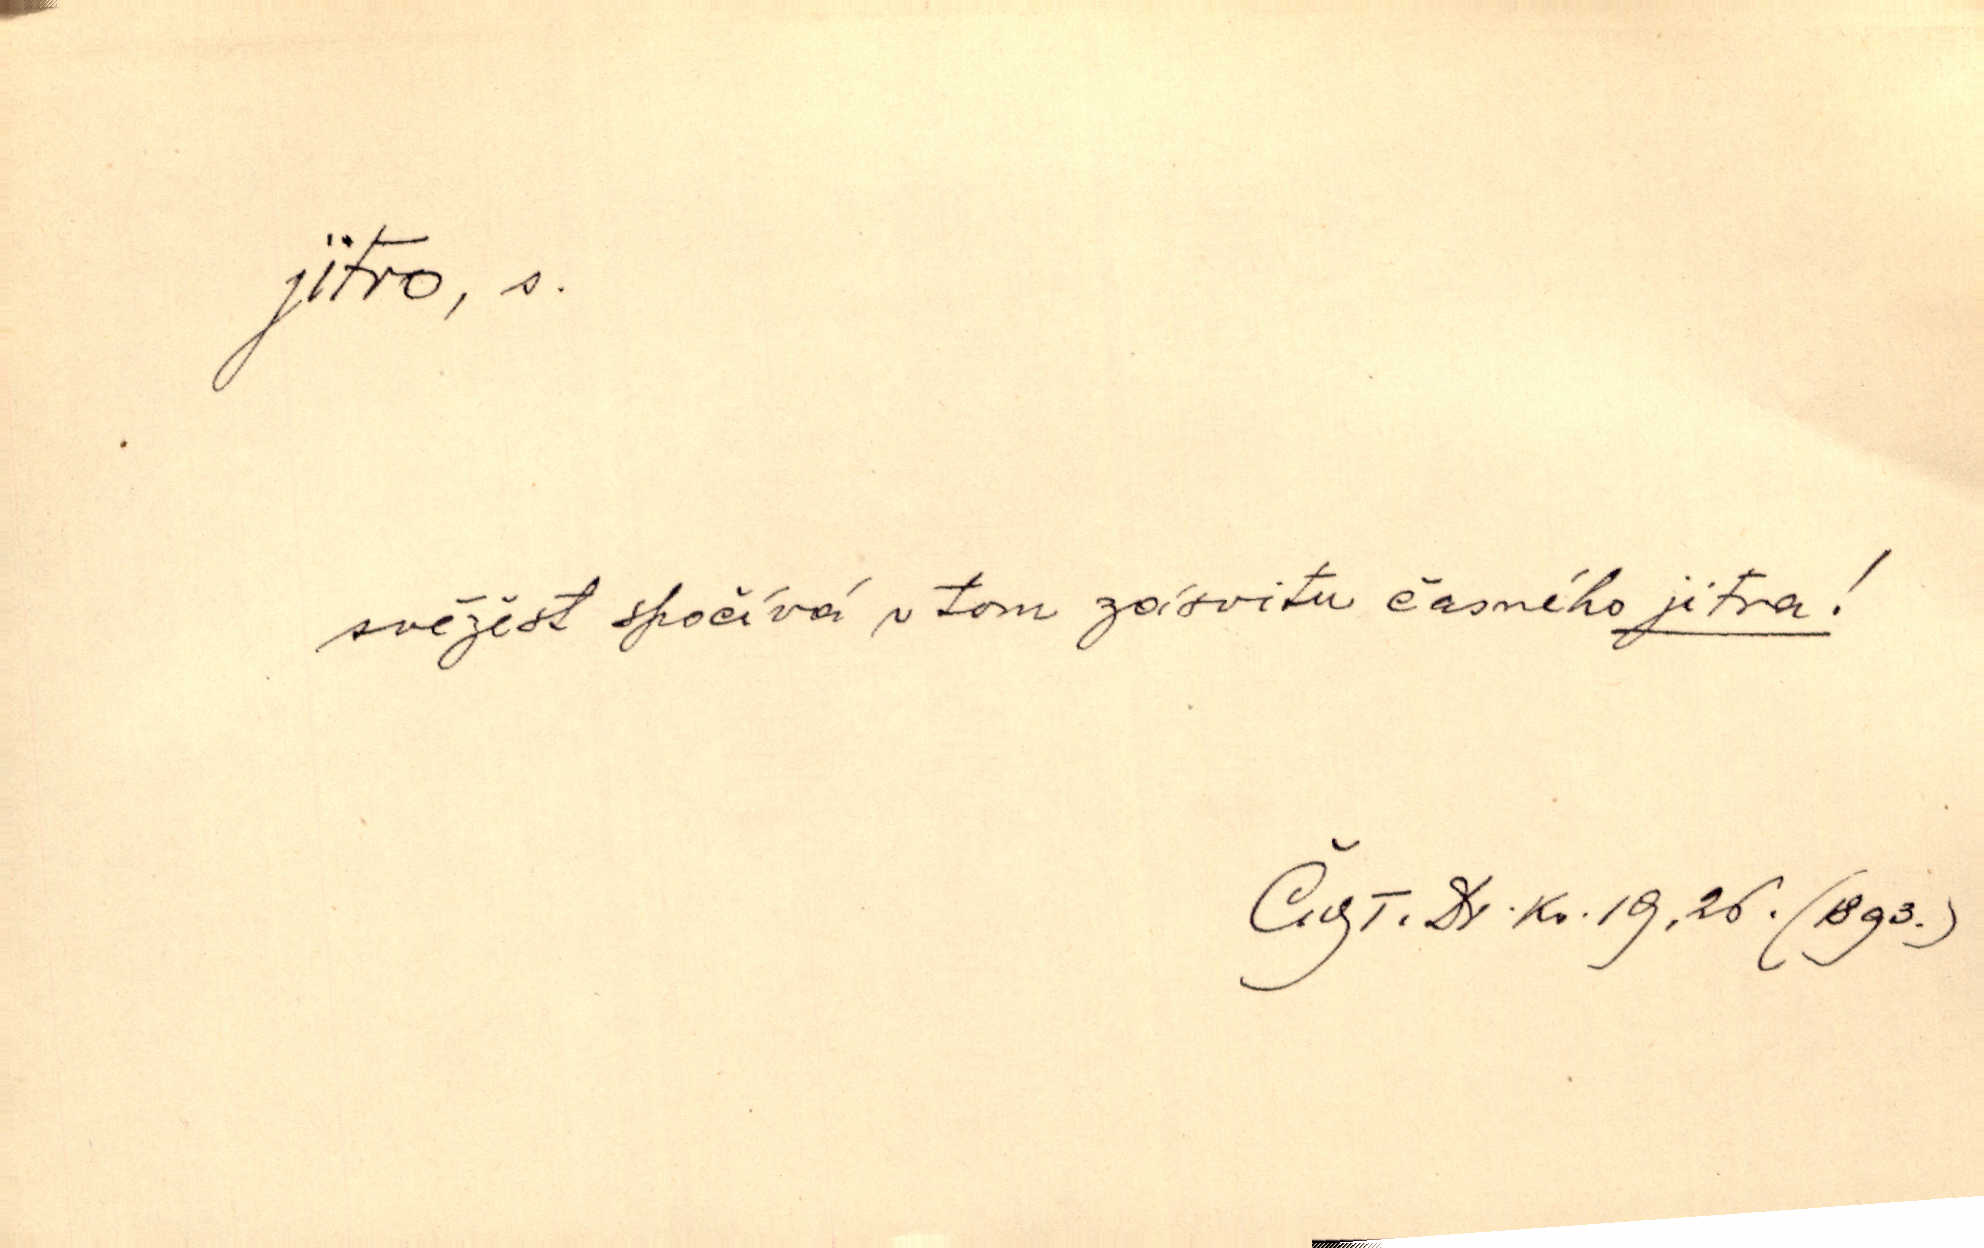 jitro, s.
svěžest spočívá v tom zásvitu časného jitra!
Dr. Kv. 19, 26. (1893.)